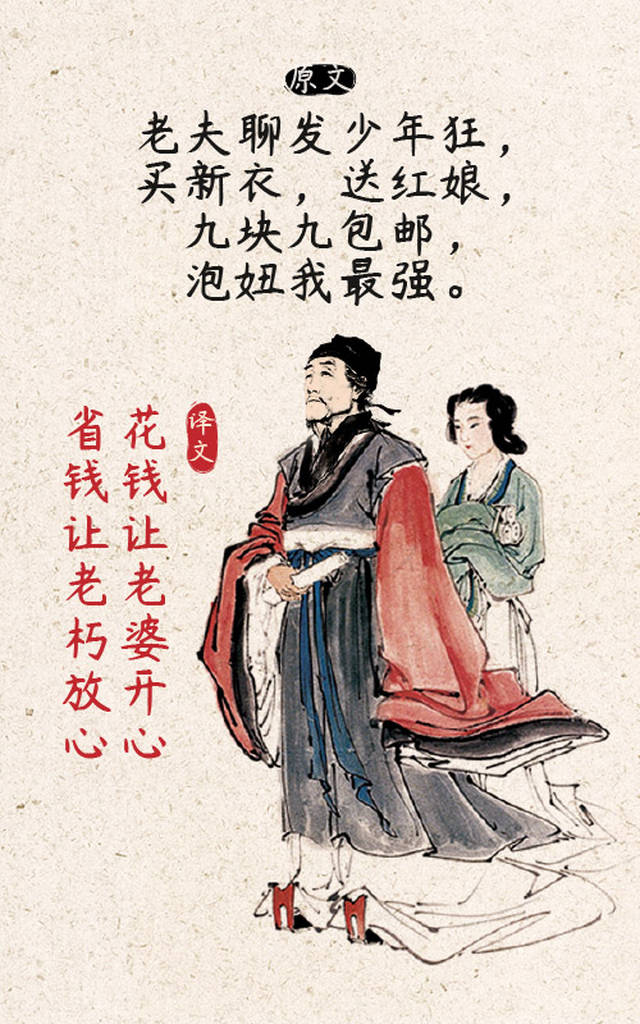 原文
老夫聊发少年狂，
买新衣，送红娘，
九块九包邮，
泡妞我最强。
译文
花钱让老婆开心
省钱让老朽放心